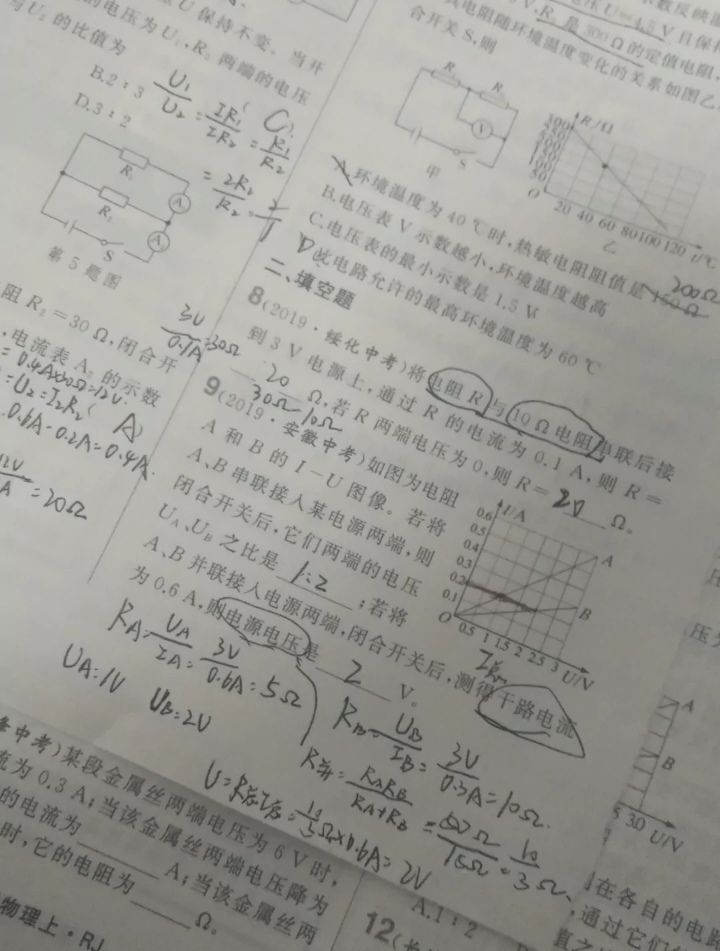 U 保持不变。当开
的电压为 U₁,R₂ 两端的电压
与 U₂ 的比值为
B.2∶3
D.3∶2
U₁/U₂=IR₁/IR₂=R₁/R₂
( C )
=2R₂/R₂=2/1
R₂
R₁
A
A₁
S
第 5 题图
阻 R₂=30 Ω,闭合开
,电流表 A₂ 的示数
=0.4A×30Ω=12V.
=U₂=I₂R₂
( A )
0.6A-0.2A=0.4A.
=20Ω
合开关 S,则
式电阻随环境温度变化的关系如图乙
R₀ 是 300 Ω 的定值电阻,
V
S
甲
R/Ω
300
O 20 40 60 80 100 120 t/℃
乙
A.环境温度为 40 ℃时,热敏电阻阻值是 150 Ω
200Ω
B.电压表 V 示数越小,环境温度越高
C.电压表的最小示数是 1.5 V
D 此电路允许的最高环境温度为 60 ℃
二、填空题
3V/0.1A=30Ω
8(2019·绥化中考)将电阻 R 与 10 Ω 电阻串联后接
到 3 V 电源上,通过 R 的电流为 0.1 A,则 R=
20 Ω,若 R 两端电压为 0,则 R= 20 Ω。
30Ω 10Ω
9(2019·安徽中考)如图为电阻
A 和 B 的 I-U 图像。若将
A、B 串联接入某电源两端,则
闭合开关后,它们两端的电压
U_A、U_B 之比是 1:2 ;若将
A、B 并联接入电源两端,闭合开关后,测得干路电流
为 0.6 A,则电源电压是 2 V。
I/A
0.6
0.5
0.4
0.3
0.2
0.1
O 0.5 1 1.5 2 2.5 3 U/V
A
B
R_A=U_A/I_A=3V/0.6A=5Ω
U_A=1V U_B=2V
R_B=U_B/I_B=3V/0.3A=10Ω.
R并=R_AR_B/(R_A+R_B)=50Ω/15Ω=10/3Ω.
U=R总I总=10/3Ω×0.6A=2V
中考)某段金属丝两端电压为 6 V 时,
流为 0.3 A;当该金属丝两端电压降为
的电流为 A;当该金属丝两
时,它的电阻为 Ω。
物理上·RJ
A.1∶2
12
A
B
3.0 U/V
在各自的电
,通过它们